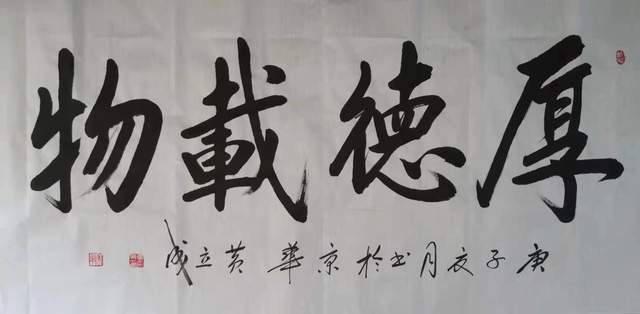 厚德載物
庚子夏月书於京華黄立成